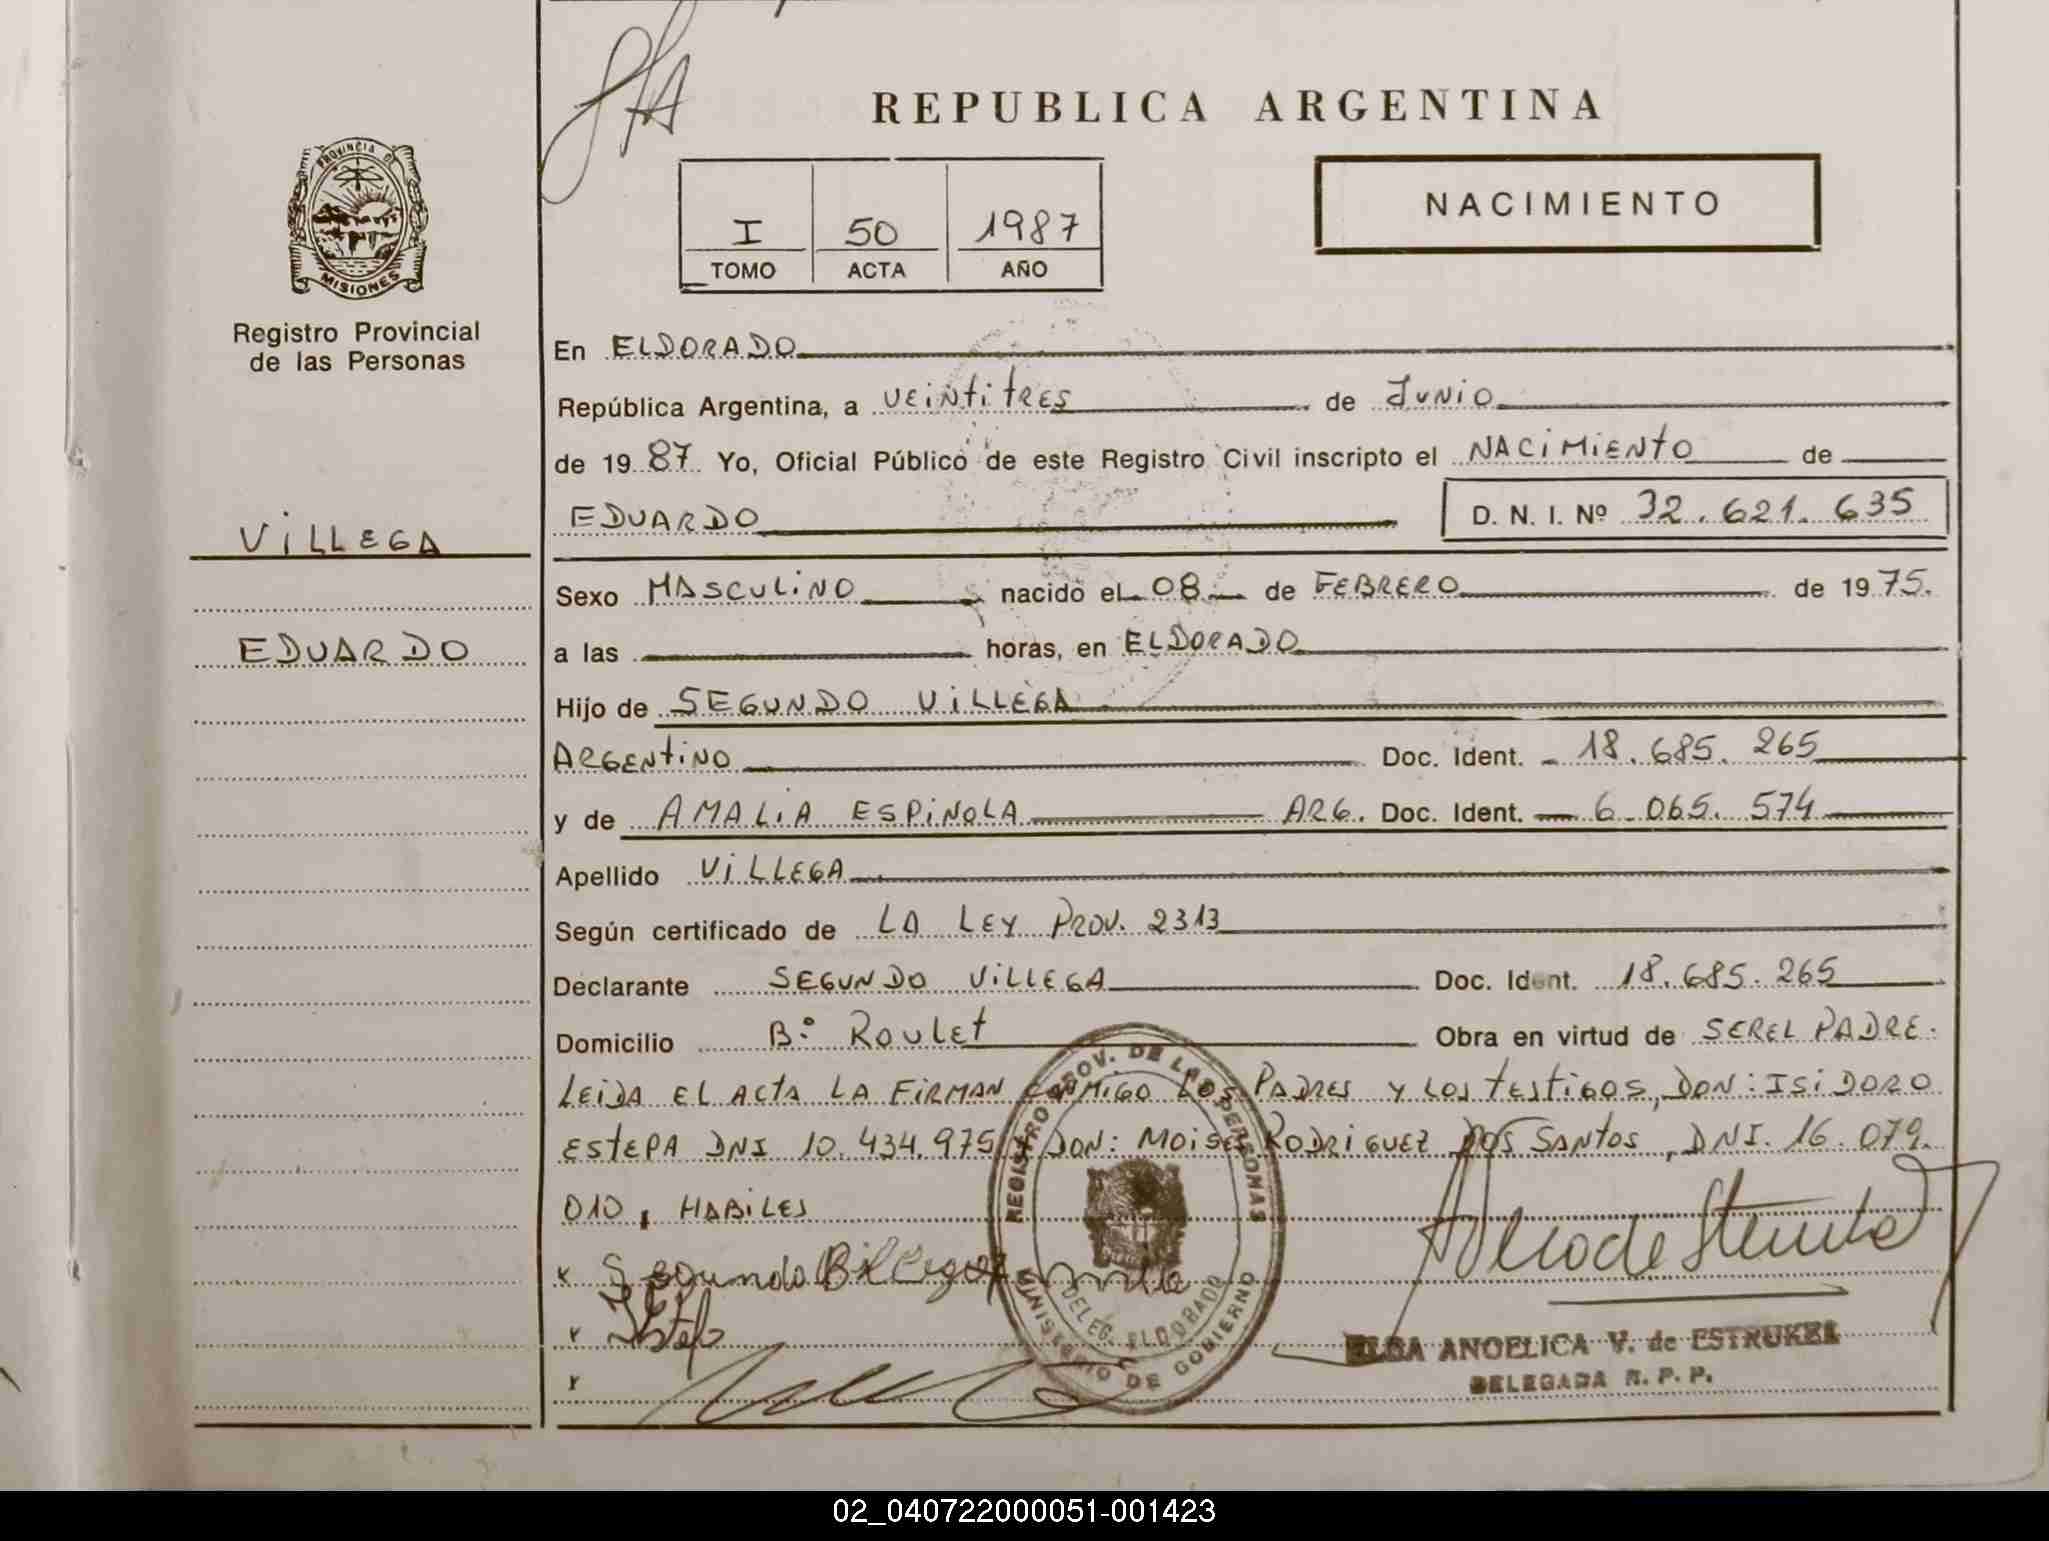 REPUBLICA ARGENTINA
PROVINCIA DE
MISIONES
Registro Provincial
de las Personas
I 50 1987
TOMO ACTA AÑO
NACIMIENTO
VILLEGA
EDUARDO
En ELDORADO
República Argentina, a VEINTITRES de JUNIO
de 1987 Yo, Oficial Público de este Registro Civil inscripto el NACIMIENTO de
EDUARDO D. N. I. Nº 32.621.635
Sexo MASCULINO nacido el 08 de FEBRERO de 1975.
a las horas, en ELDORADO
Hijo de SEGUNDO VILLEGA
ARGENTINO Doc. Ident. 18.685.265
y de AMALIA ESPINOLA ARG. Doc. Ident. 6.065.574
Apellido VILLEGA
Según certificado de LA LEY PROV. 2313
Declarante SEGUNDO VILLEGA Doc. Ident. 18.685.265
Domicilio Bº ROULET Obra en virtud de SER EL PADRE.
LEIDA EL ACTA LA FIRMAN CONMIGO LOS PADRES Y LOS TESTIGOS, DON: ISIDORO
ESTEPA DNI 10.434.975 Y DON: MOISES RODRIGUEZ DOS SANTOS, DNI. 16.079.
010, HABILES
x Segundo
REGISTRO PROV. DE LAS PERSONAS
DELEG. ELDORADO
MINISTERIO DE GOBIERNO
ELSA ANGELICA V. de ESTRUKEL
DELEGADA R. P. P.
02_040722000051-001423